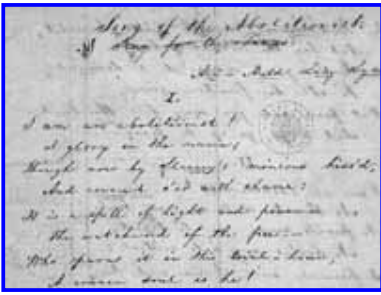 Song of the Abolitionist.
Air: Auld Lang Syne
I.
I am an abolitionist!
I glory in the name;
Though now by Slavery's minions hiss'd,
And covered o'er with shame:
It is a spell of light and power
The watchword of the free
Who spurns it in the trial-hour,
A craven soul is he!